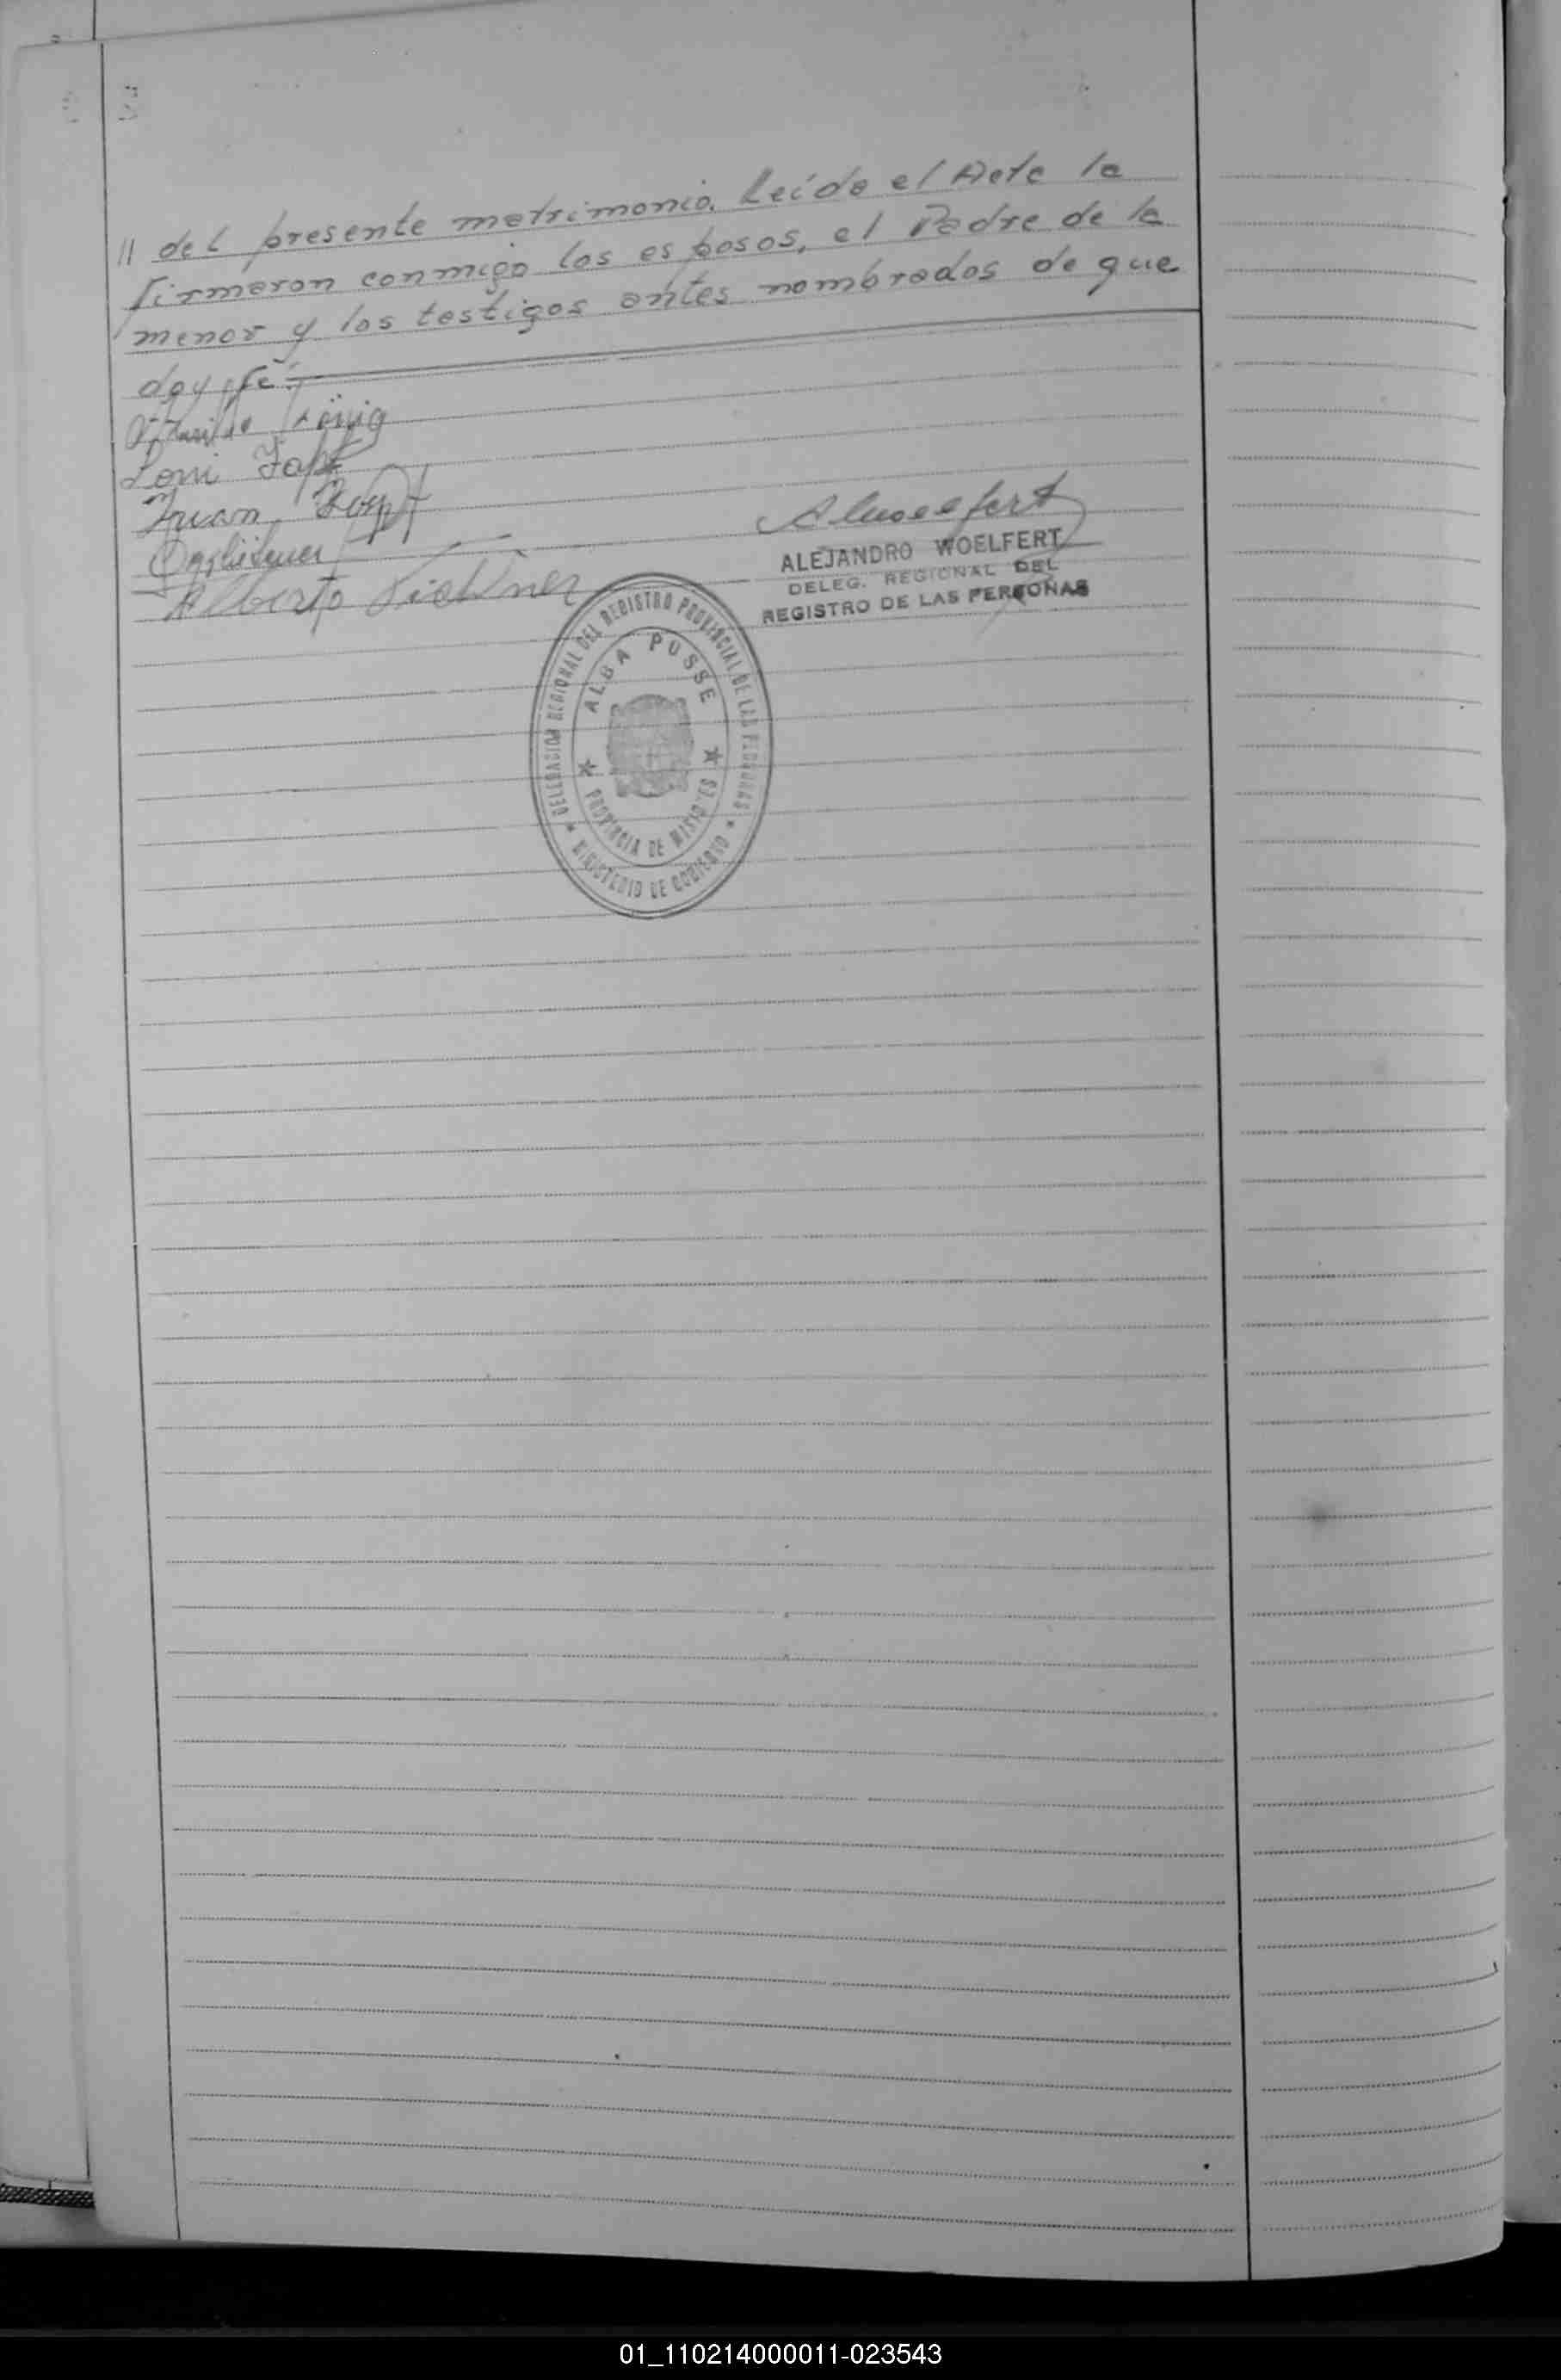 // del presente matrimonio. Leída el Acta la
firmaron conmigo los esposos, el Padre de la
menor y los testigos antes nombrados de que
doy fé.
König
Loni
Juan
Alberto
ALEJANDRO WOELFERT
DELEG. REGIONAL DEL
REGISTRO DE LAS PERSONAS
DELEGACION REGIONAL DEL REGISTRO PROVINCIAL DE LAS PERSONAS
ALBA POSSE
PROVINCIA DE MISIONES
MINISTERIO DE GOBIERNO
01_110214000011-023543